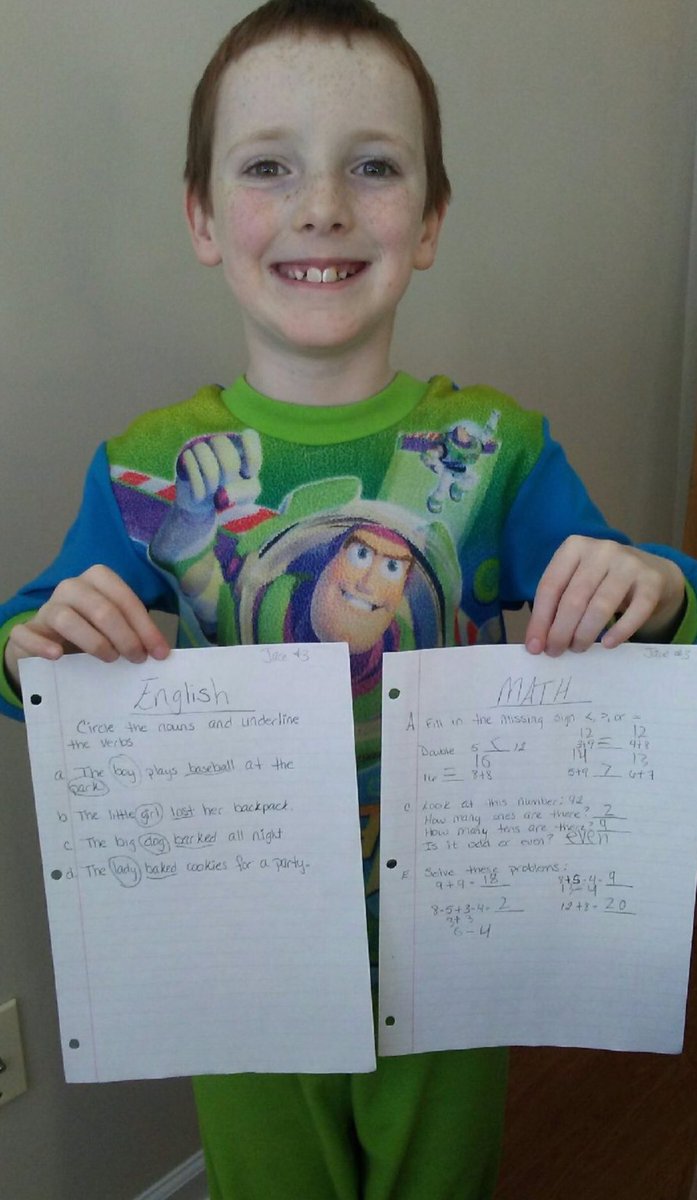 Jace #3
English
Circle the nouns and underline
the verbs
a. The boy plays baseball at the
park
b The little girl lost her backpack.
c. The big dog barked all night
d. The lady baked cookies for a party.
Jace #3
MATH
A Fill in the missing sign <, >, or =
12 12
Double 5 < 12 3+9 = 4+8
16 14 13
16 = 8+8 5+9 > 6+7
C. Look at this number: 92
How many ones are there? 2
How many tens are there? 9
Is it odd or even? even
E. Solve these problems:
9+9= 18 8+5-4= 9
13-4
8-5+3-4= 2 12+8= 20
3+3
6-4